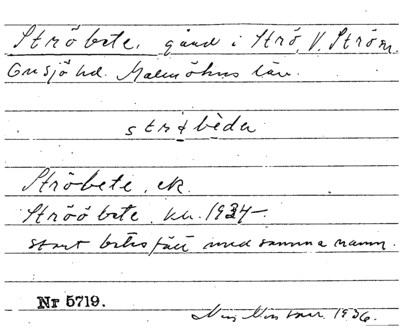 Ströbete, gård i Strö, V. Ström,
Onsjö hd. Malmöhus län.
ströbèda
Ströbete, ek.
Ströö bete, kh. 1934-
stort betesfält med samma namn.
Nr 5719.
1936.